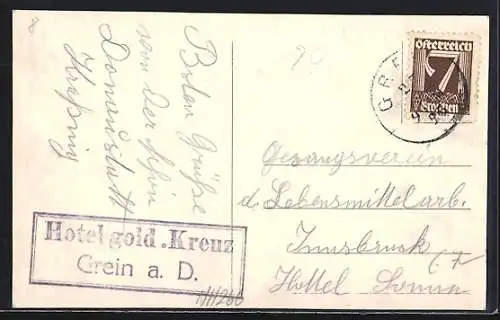 Besten Grüße
von der schön
Donaustadt
Hotel gold. Kreuz
Grein a. D.
Österreich
7
Groschen
GRE
Gesangsverein
d. Lebensmittelarb.
Innsbruck
Hottel Sonne